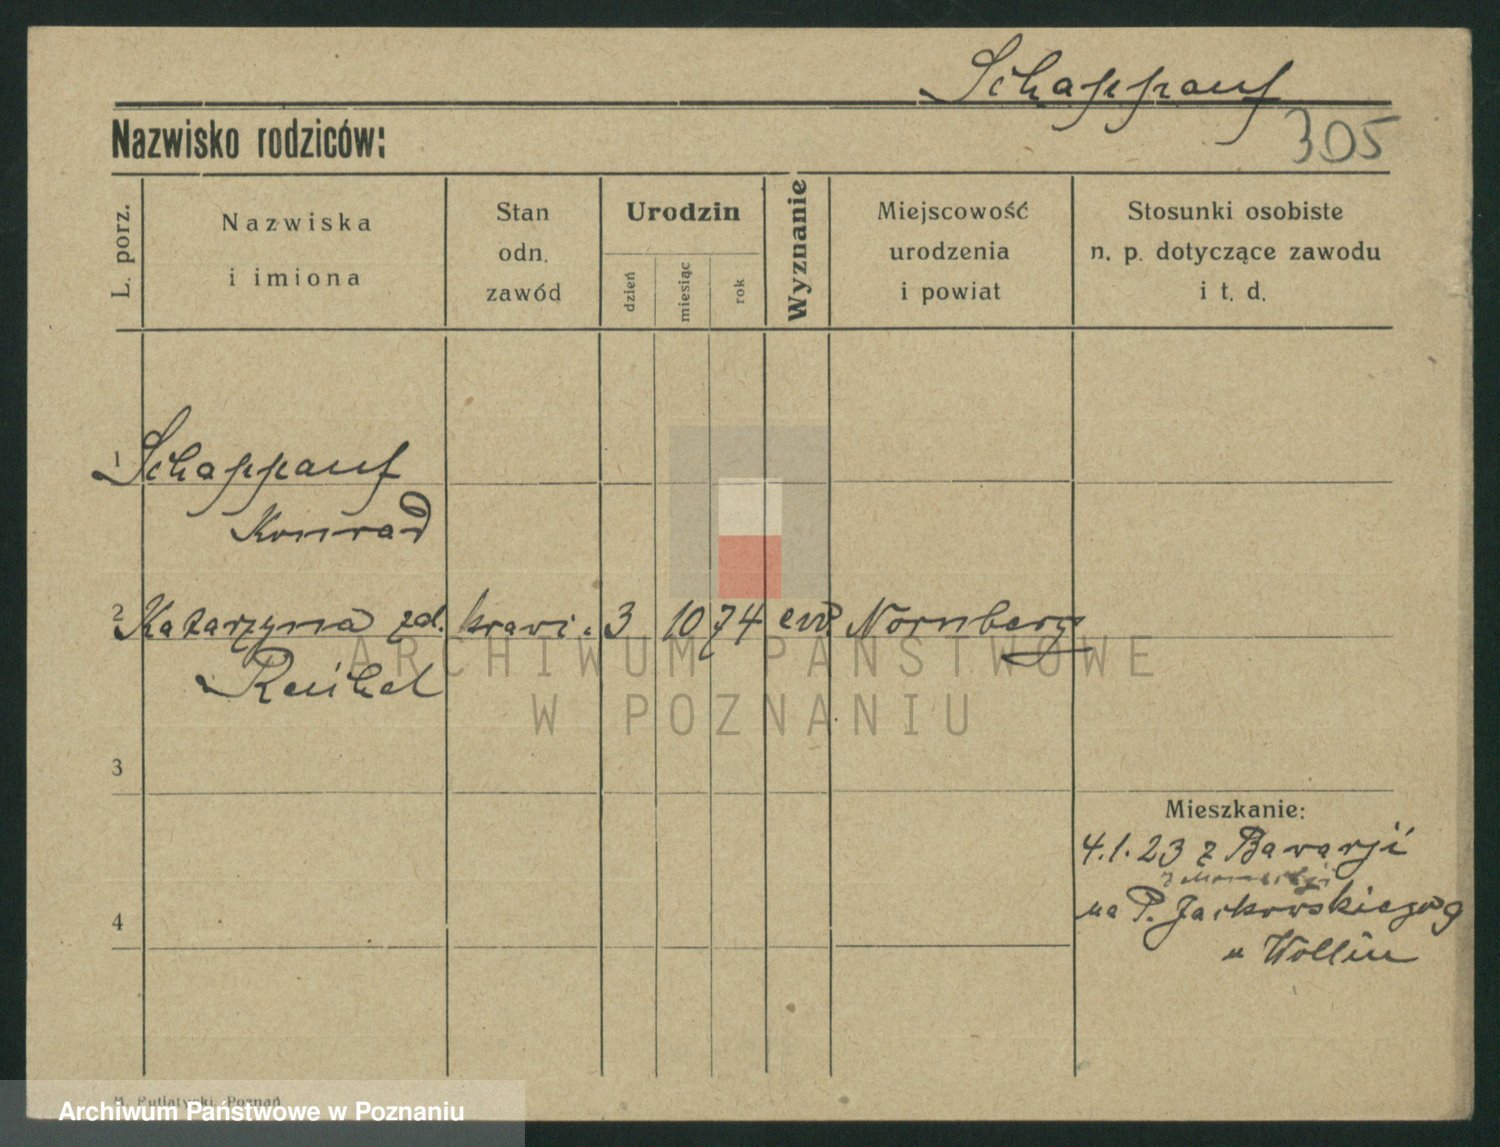 Schappauf
305
Nazwisko rodziców:
L. porz.
Nazwiska
i imiona
Stan
odn.
zawód
Urodzin
dzień
miesiąc
rok
Wyznanie
Miejscowość
urodzenia
i powiat
Stosunki osobiste
n. p. dotyczące zawodu
i t. d.
1 Schappauf
Konrad
2 Katarzyna zd. krawi. 3 10 74 ew. Nornberg
Reichel
3
Mieszkanie:
4.1.23 z Bawarji
na P. Jackowskiego 9
u Wollin
4
ARCHIWUM PAŃSTWOWE
W POZNANIU
M. Putiatycki, Poznań
Archiwum Państwowe w Poznaniu